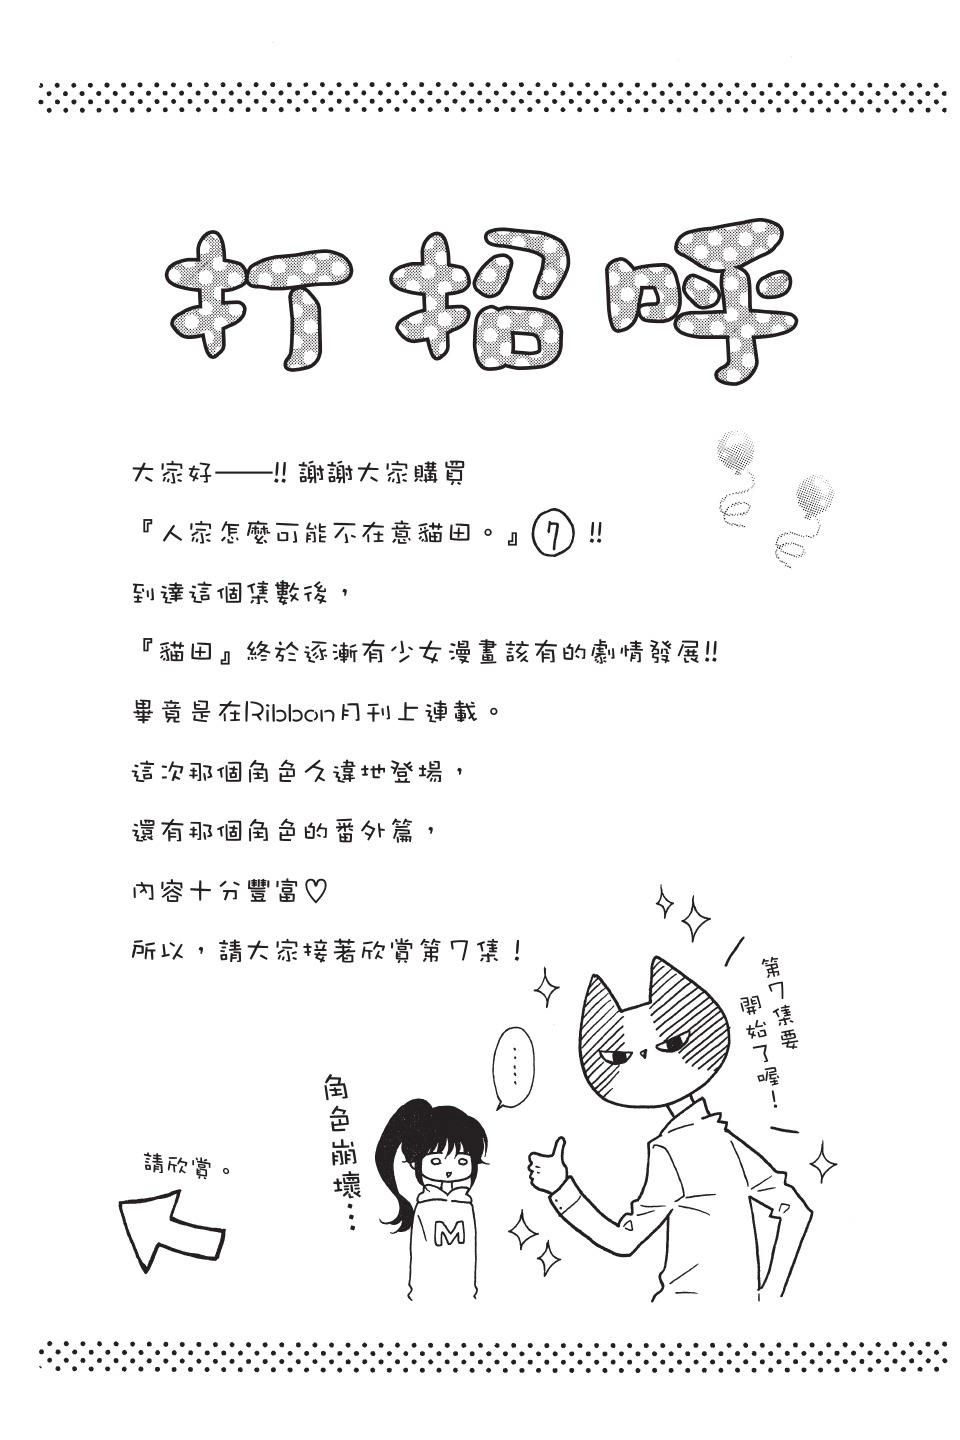 打招呼
大家好——!! 謝謝大家購買
『人家怎麼可能不在意貓田。』⑦!!
到達這個集數後，
『貓田』終於逐漸有少女漫畫該有的劇情發展!!
畢竟是在Ribbon月刊上連載。
這次那個角色久違地登場，
還有那個角色的番外篇，
內容十分豐富♡
所以，請大家接著欣賞第7集！
第7集要
開始了喔！
……
角色崩壞…
M
請欣賞。